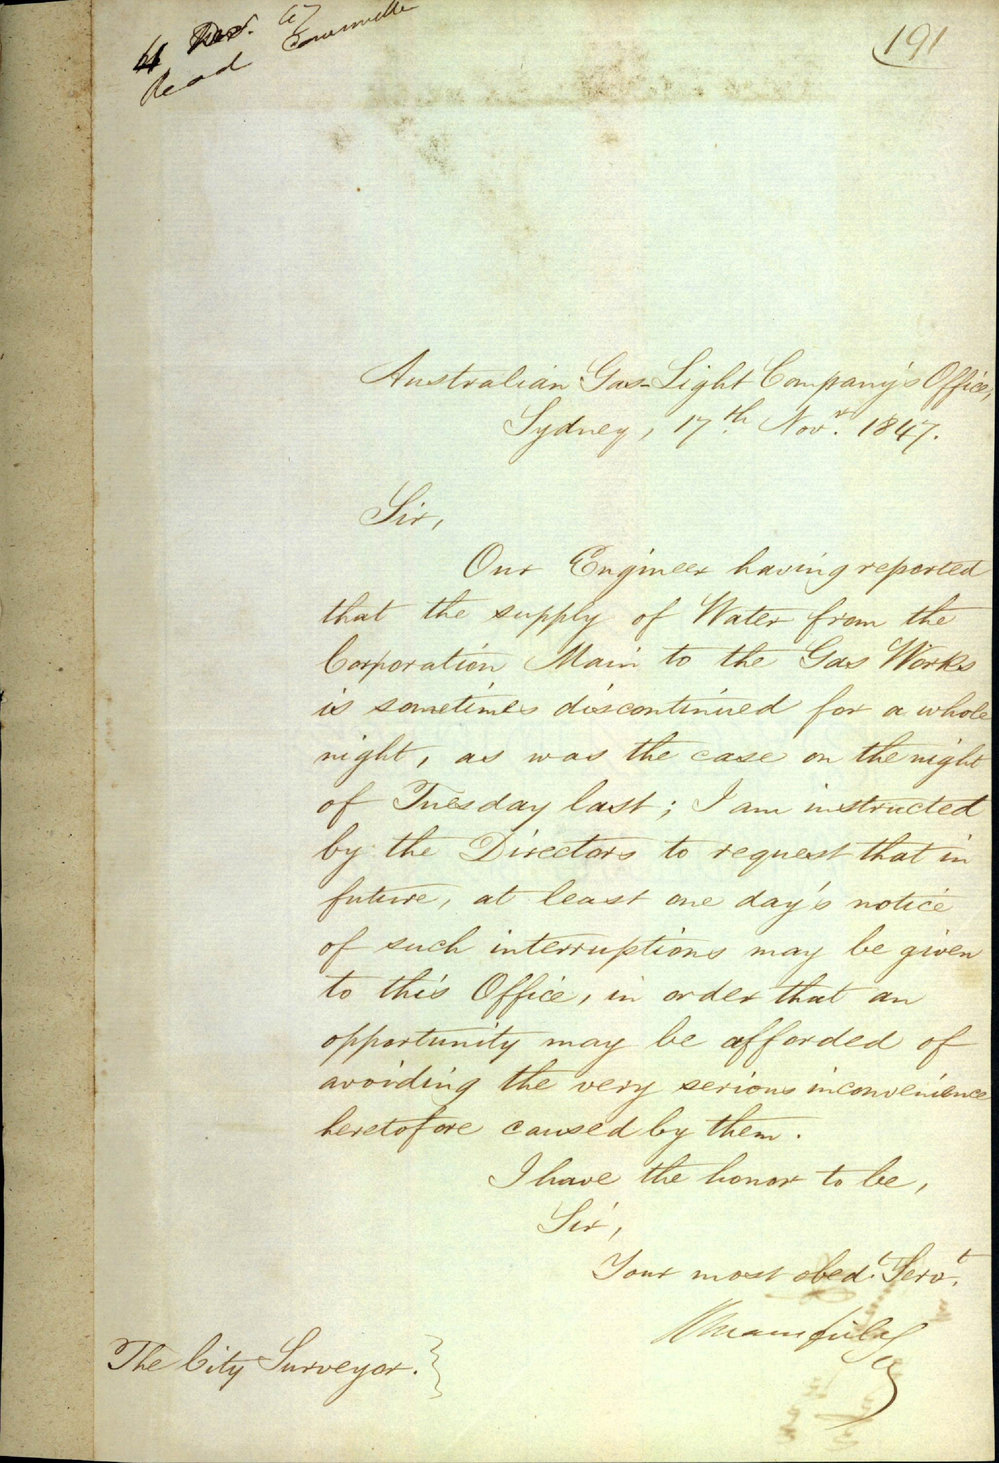 Decr. 47
Read
191
Australian Gas-Light Company's Office,
Sydney, 17th. Novr. 1847.
Sir,
Our Engineer having reported
that the supply of Water from the
Corporation Main to the Gas Works
is sometimes discontinued for a whole
night, as was the case on the night
of Tuesday last; I am instructed
by the Directors to request that in
future, at least one day's notice
of such interruptions may be given
to this Office, in order that an
opportunity may be afforded of
avoiding the very serious inconvenience
heretofore caused by them.
I have the honor to be,
Sir,
Your most obedt. Servt.
RMansfield Secy
The City Surveyor.